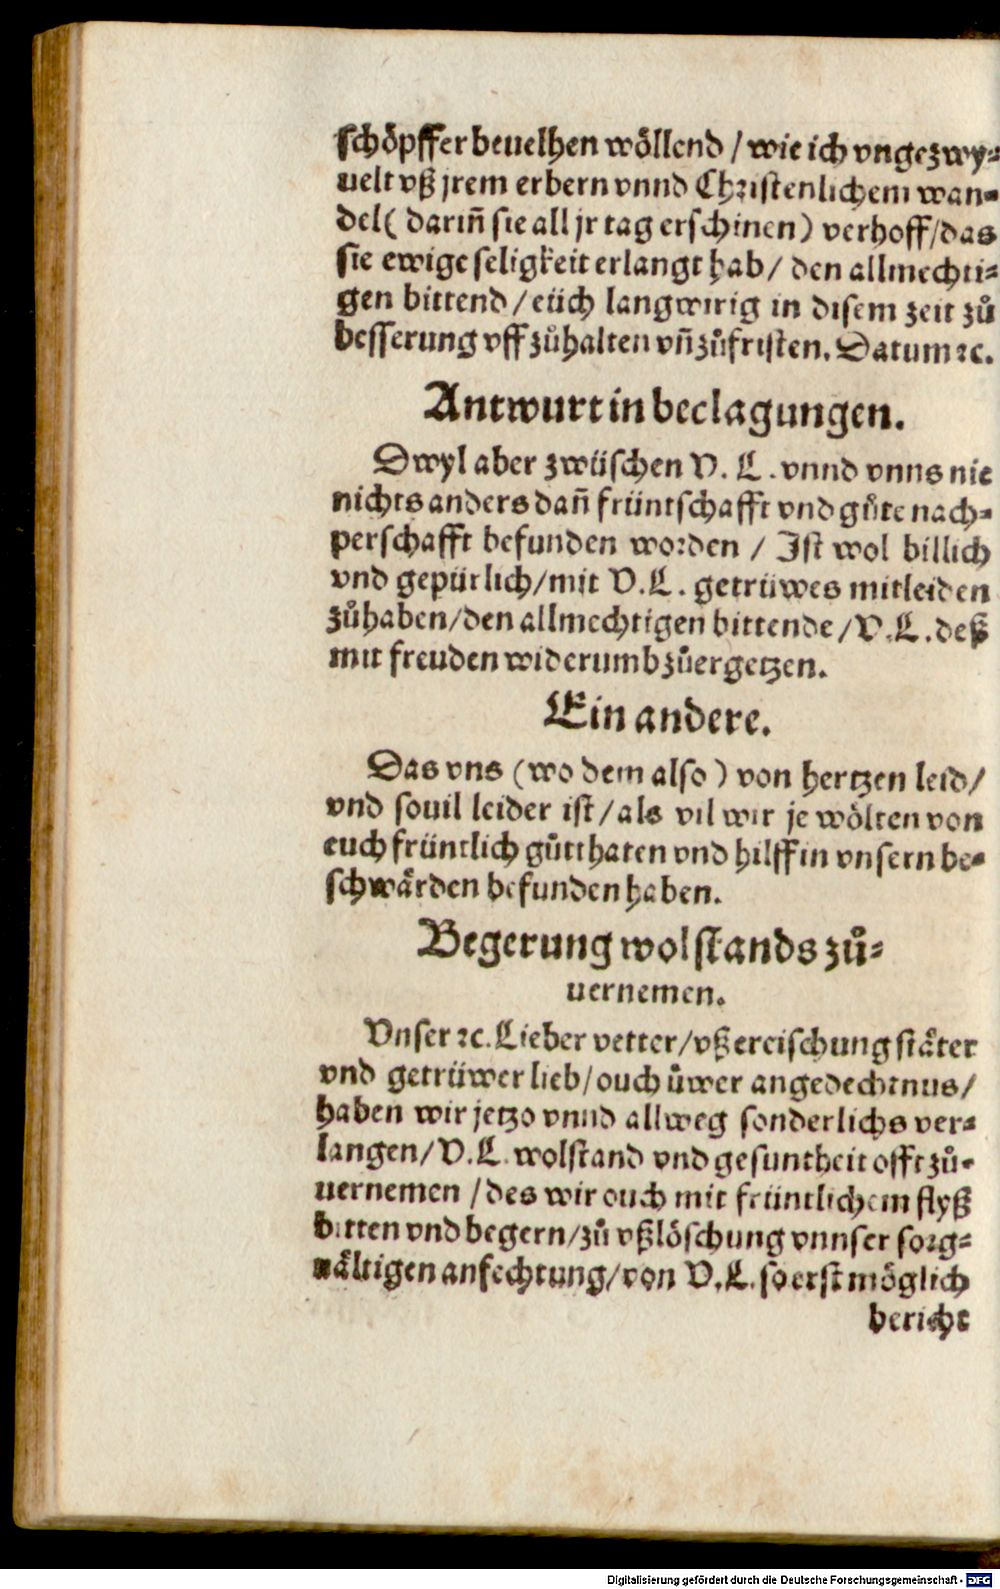 schöpffer beuelhen wöllend / wie ich vngezwy=
uelt vß jrem erbern vnnd Christenlichem wan=
del( dariñ sie all jr tag erschinen) verhoff/das
sie ewige seligkeit erlangt hab/ den allmechti=
gen bittend /eüch langwirig in disem zeit zů
besserung vff zůhalten vñ zůfristen. Datum ꝛc.
Antwurt in beclagungen.
Dwyl aber zwüschen V. L. vnnd vnns nie
nichts anders dañ früntschafft vnd gůte nach=
perschafft befunden worden / Ist wol billich
vnd gepürlich/mit V.L. getrüwes mitleiden
zůhaben/den allmechtigen bittende /V.L.deß
mit freuden widerumb zůergetzen.
Ein andere.
Das vns (wo dem also) von hertzen leid/
vnd souil leider ist/als vil wir je wölten von
euch früntlich gůtthaten vnd hilff in vnsern be=
schwärden befunden haben.
Begerung wolstands zů=
uernemen.
Vnser ꝛc. Lieber vetter/vß ereischung stäter
vnd getrüwer lieb/ouch üwer angedechtnus/
haben wir jetzo vnnd allweg sonderlichs ver=
langen/V.L. wolstand vnd gesuntheit offt zů=
uernemen /des wir ouch mit früntlichem flyß
bitten vnd begern/zů vßlöschung vnnser sorg=
uältigen anfechtung/von V.L. so erst möglich
bericht
Digitalisierung gefördert durch die Deutsche Forschungsgemeinschaft - DFG